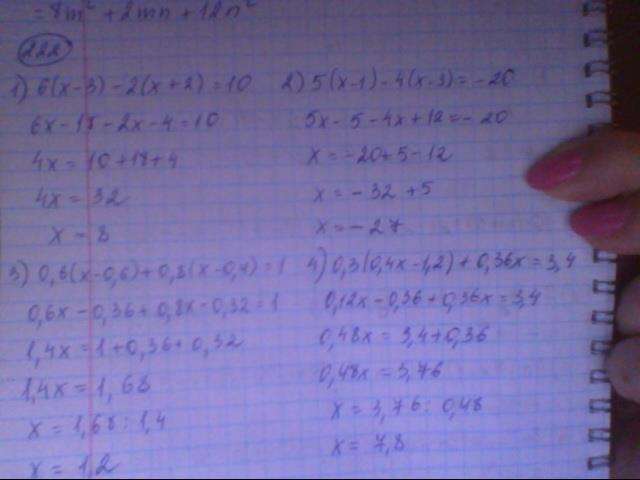 = 8m² + 2mn + 12n²
222
1) 6(x-3) - 2(x+2) = 10
6x - 18 - 2x - 4 = 10
4x = 10 + 18 + 4
4x = 32
x = 8
2) 5(x-1) - 4(x-3) = -20
5x - 5 - 4x + 12 = -20
x = -20 + 5 - 12
x = -32 + 5
x = -27
3) 0,6(x-0,6) + 0,8(x-0,4) = 1
0,6x - 0,36 + 0,8x - 0,32 = 1
1,4x = 1 + 0,36 + 0,32
1,4x = 1,68
x = 1,68 : 1,4
x = 1,2
4) 0,3(0,4x - 1,2) + 0,36x = 3,4
0,12x - 0,36 + 0,36x = 3,4
0,48x = 3,4 + 0,36
0,48x = 3,76
x = 3,76 : 0,48
x = 7,8